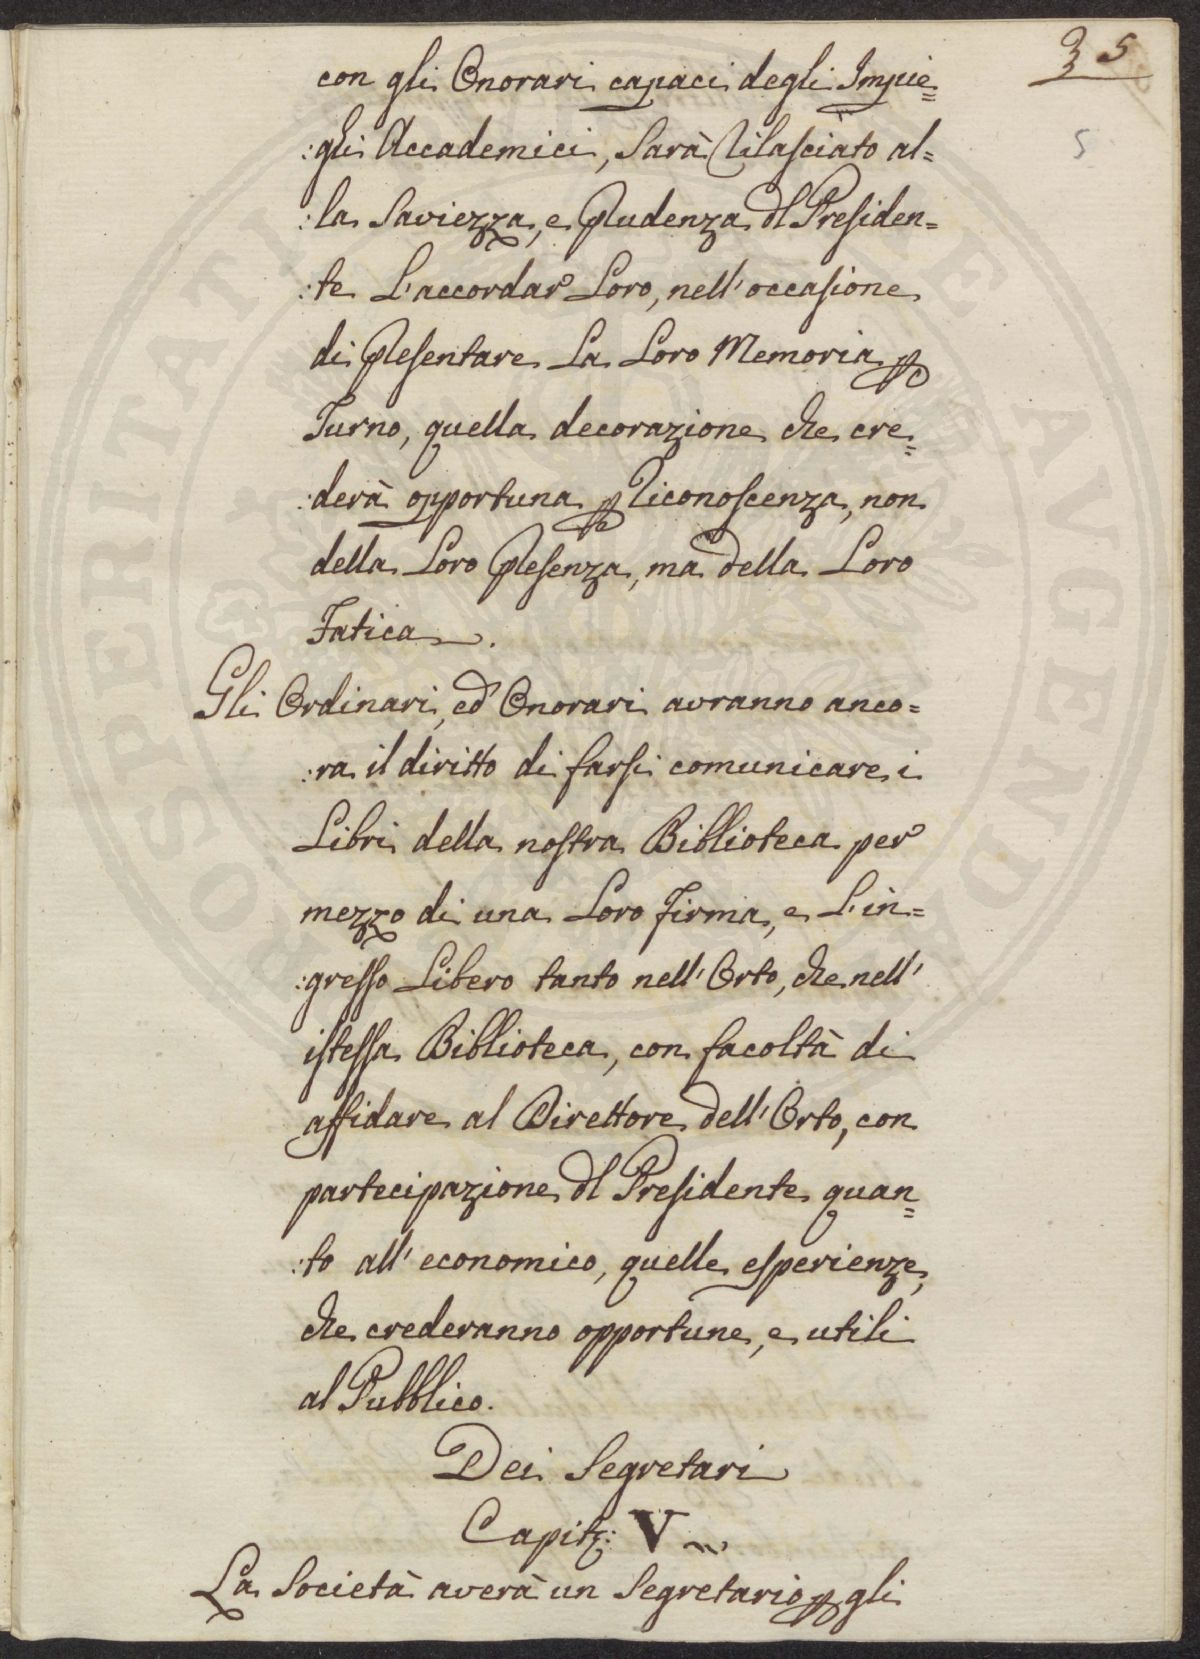 35
5
con gli Onorari capaci degli Impie=
:ghi Accademici, Sarà rilasciato al=
:la Saviezza, e Prudenza del Presiden=
:te L'accordar Loro, nell'occasione
di Presentare La Loro Memoria per
Turno, quella decorazione che cre=
:derà opportuna per riconoscenza, non
della Loro Presenza, ma della Loro
Fatica.
Gli Ordinari, ed Onorari avranno anco=
:ra il diritto di farsi comunicare i
Libri della nostra Biblioteca per
mezzo di una Loro firma, e L'in=
:gresso Libero tanto nell'Orto, che nell'
istessa Biblioteca, con facoltà di
affidare al Direttore dell'Orto, con
partecipazione del Presidente quan=
:to all'economico, quelle esperienze,
che crederanno opportune, e utili
al Pubblico.
Dei Segretari
Capit: V
La Società averà un Segretario per gli
PROSPERITATI AVGENDAE